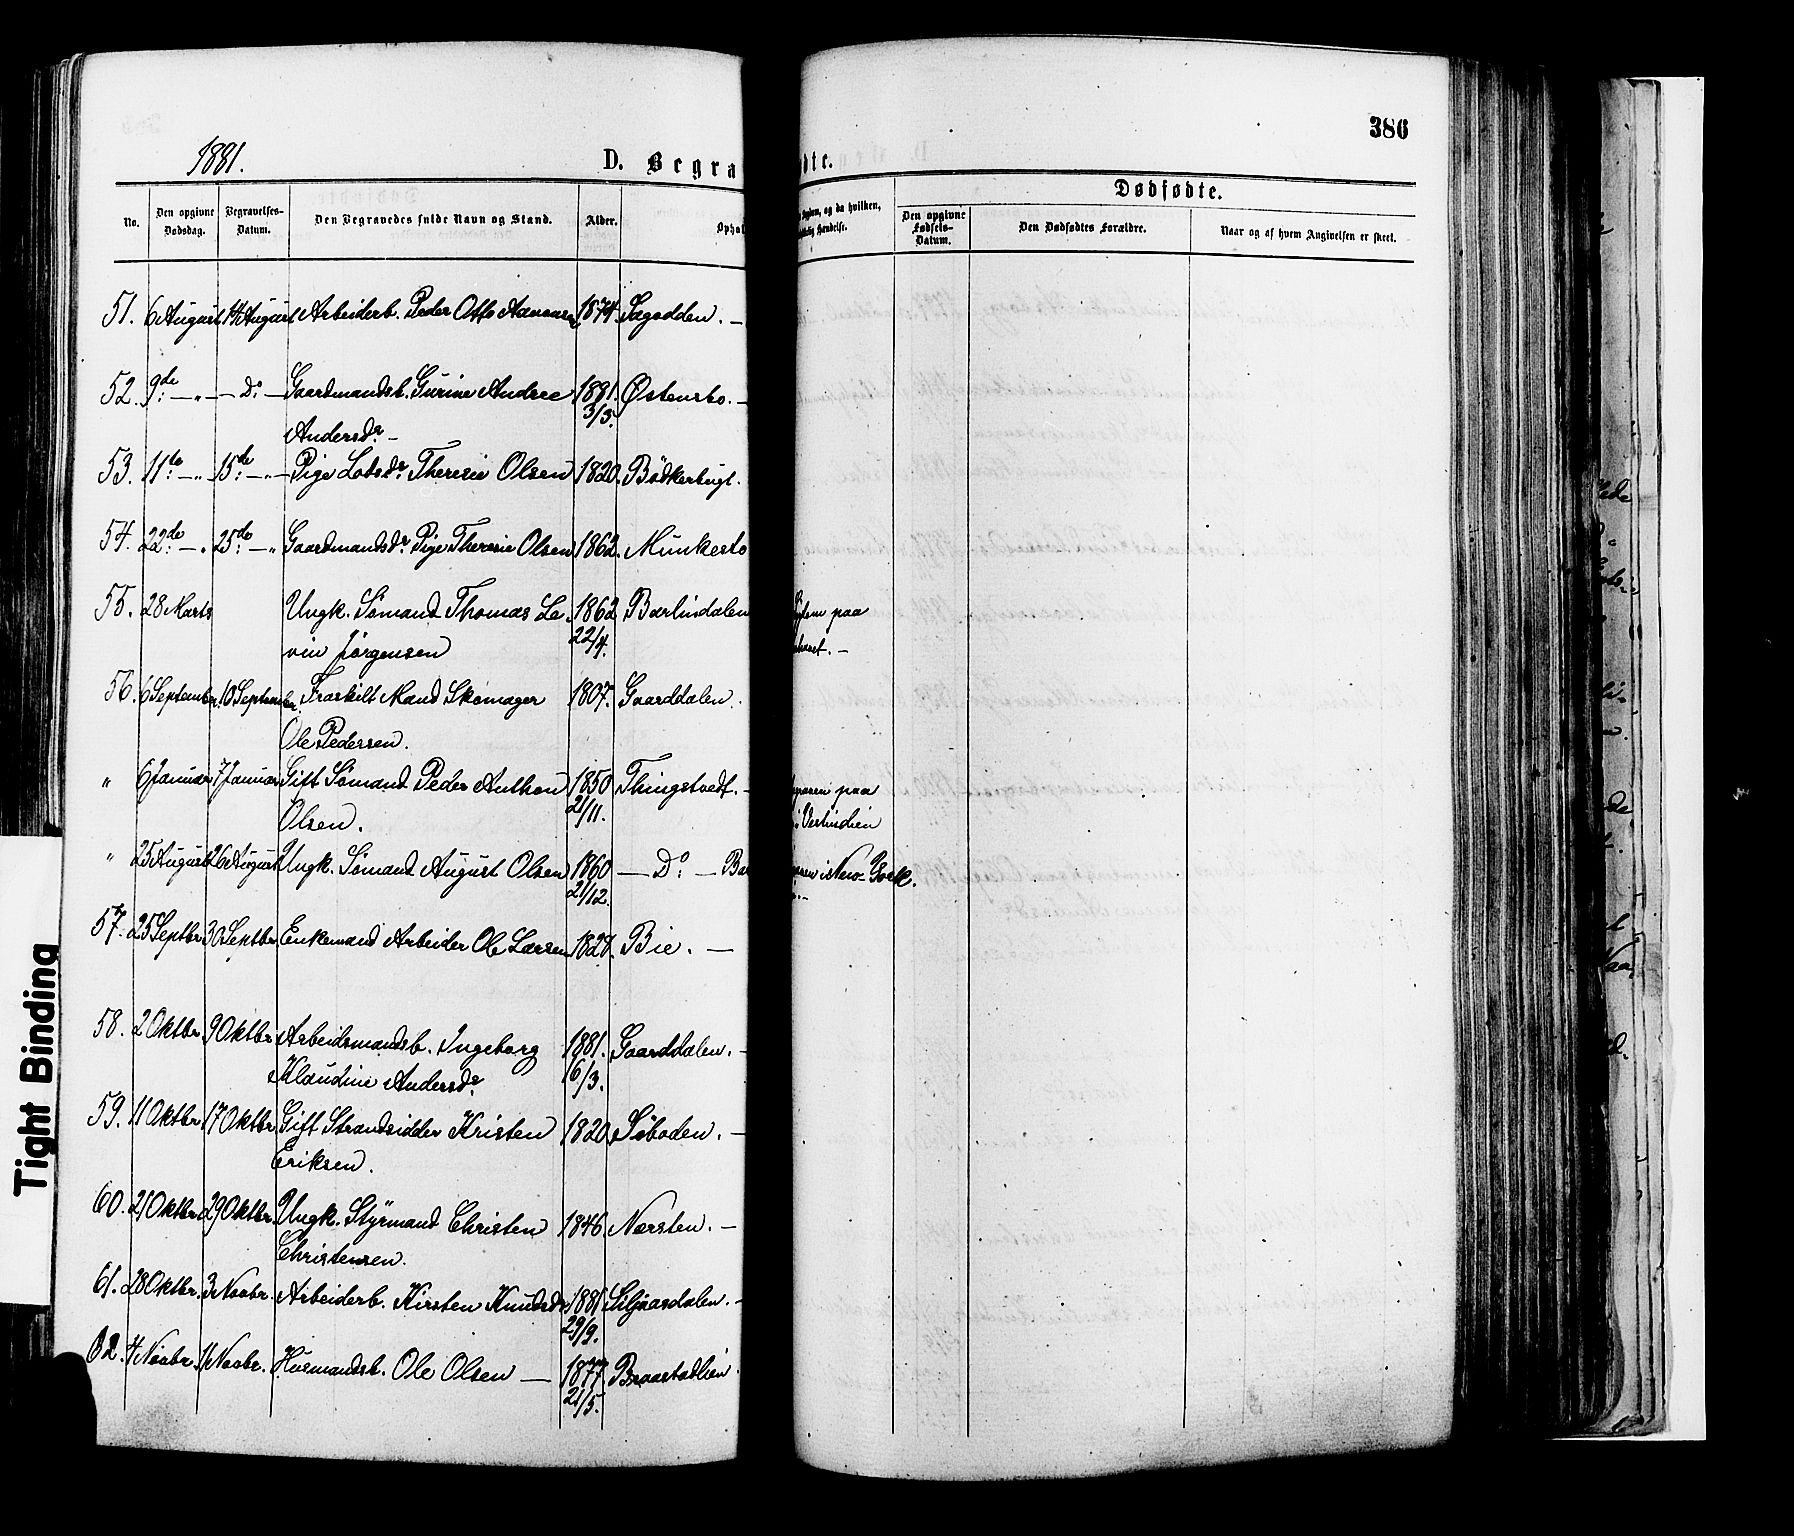 386
1881.
D. Begra
dte.
No.
Den opgivne Dødsdag.
Begravelses-Datum.
Den Begravedes fulde Navn og Stand.
Alder.
Ophol
og da hvilken,
Hændelse.
Dødfødte.
Den opgivne Fødsels-Datum.
Den Dødfødtes Forældre.
Naar og af hvem Angivelsen er skeet.
51. 6 August 14 August Arbeiderb. Peder Otto Aanonsen 1874. Tagodden. —
52. 9de — „ — Do — Gaardmandsb. Gurine Andree 1881. Østensbo. —
Andersdr — 3/3.
53. 11te — „ 15de — „ — Pige Lodsdr Theresie Olsen 1820. Bödkerbugt.
54. 22de — „ 25de — „ Gaardmandsdr Pige Theresie Olsen 1862. Munkesto
55. 28 Marts Ungk. Sömand Thomas Le- 1862 Barlindalen paa
vin Jörgensen 22/4. havet. —
56. 6 September 10 September Fraskilt Mand Skomager 1807. Gaarddalen.
Ole Pedersen.
„ 6 Januar 7 Januar Gift Sömand Peder Anthon 1850 Thingstvedt. — paa
Olsen. 21/11. i Vestindien
„ 25 August 26 August Ungk. Sömand August Olsen 1860 — Do — i New-York.
21/12.
57. 25 Septbr 30 Septbr. Enkemand Arbeider Ole Larsen 1827. Bie. —
58. 2 Oktbr. 9 Oktbr Arbeidsmandsb. Ingeborg 1881. Gaarddalen. —
Klaudine Andersdr 16/3.
59. 11 Oktbr. 17 Oktbr. Gift Strandsidder Kristen 1820. Söboden. —
Eriksen.
60. 21 Oktbr. 29 Oktbr. Ungk. Styrmand Christen 1846. Næersten. —
Christensen.
61. 28 Oktbr. 3 Novbr. Arbeiderb. Kirsten Knudsdr 1881 Siljaasdalen. —
29/9.
62. 4 Novbr. 11 Novbr. Husmandsb. Ole Olsen — 1877. Braastadlien.
21/5.
Tight Binding